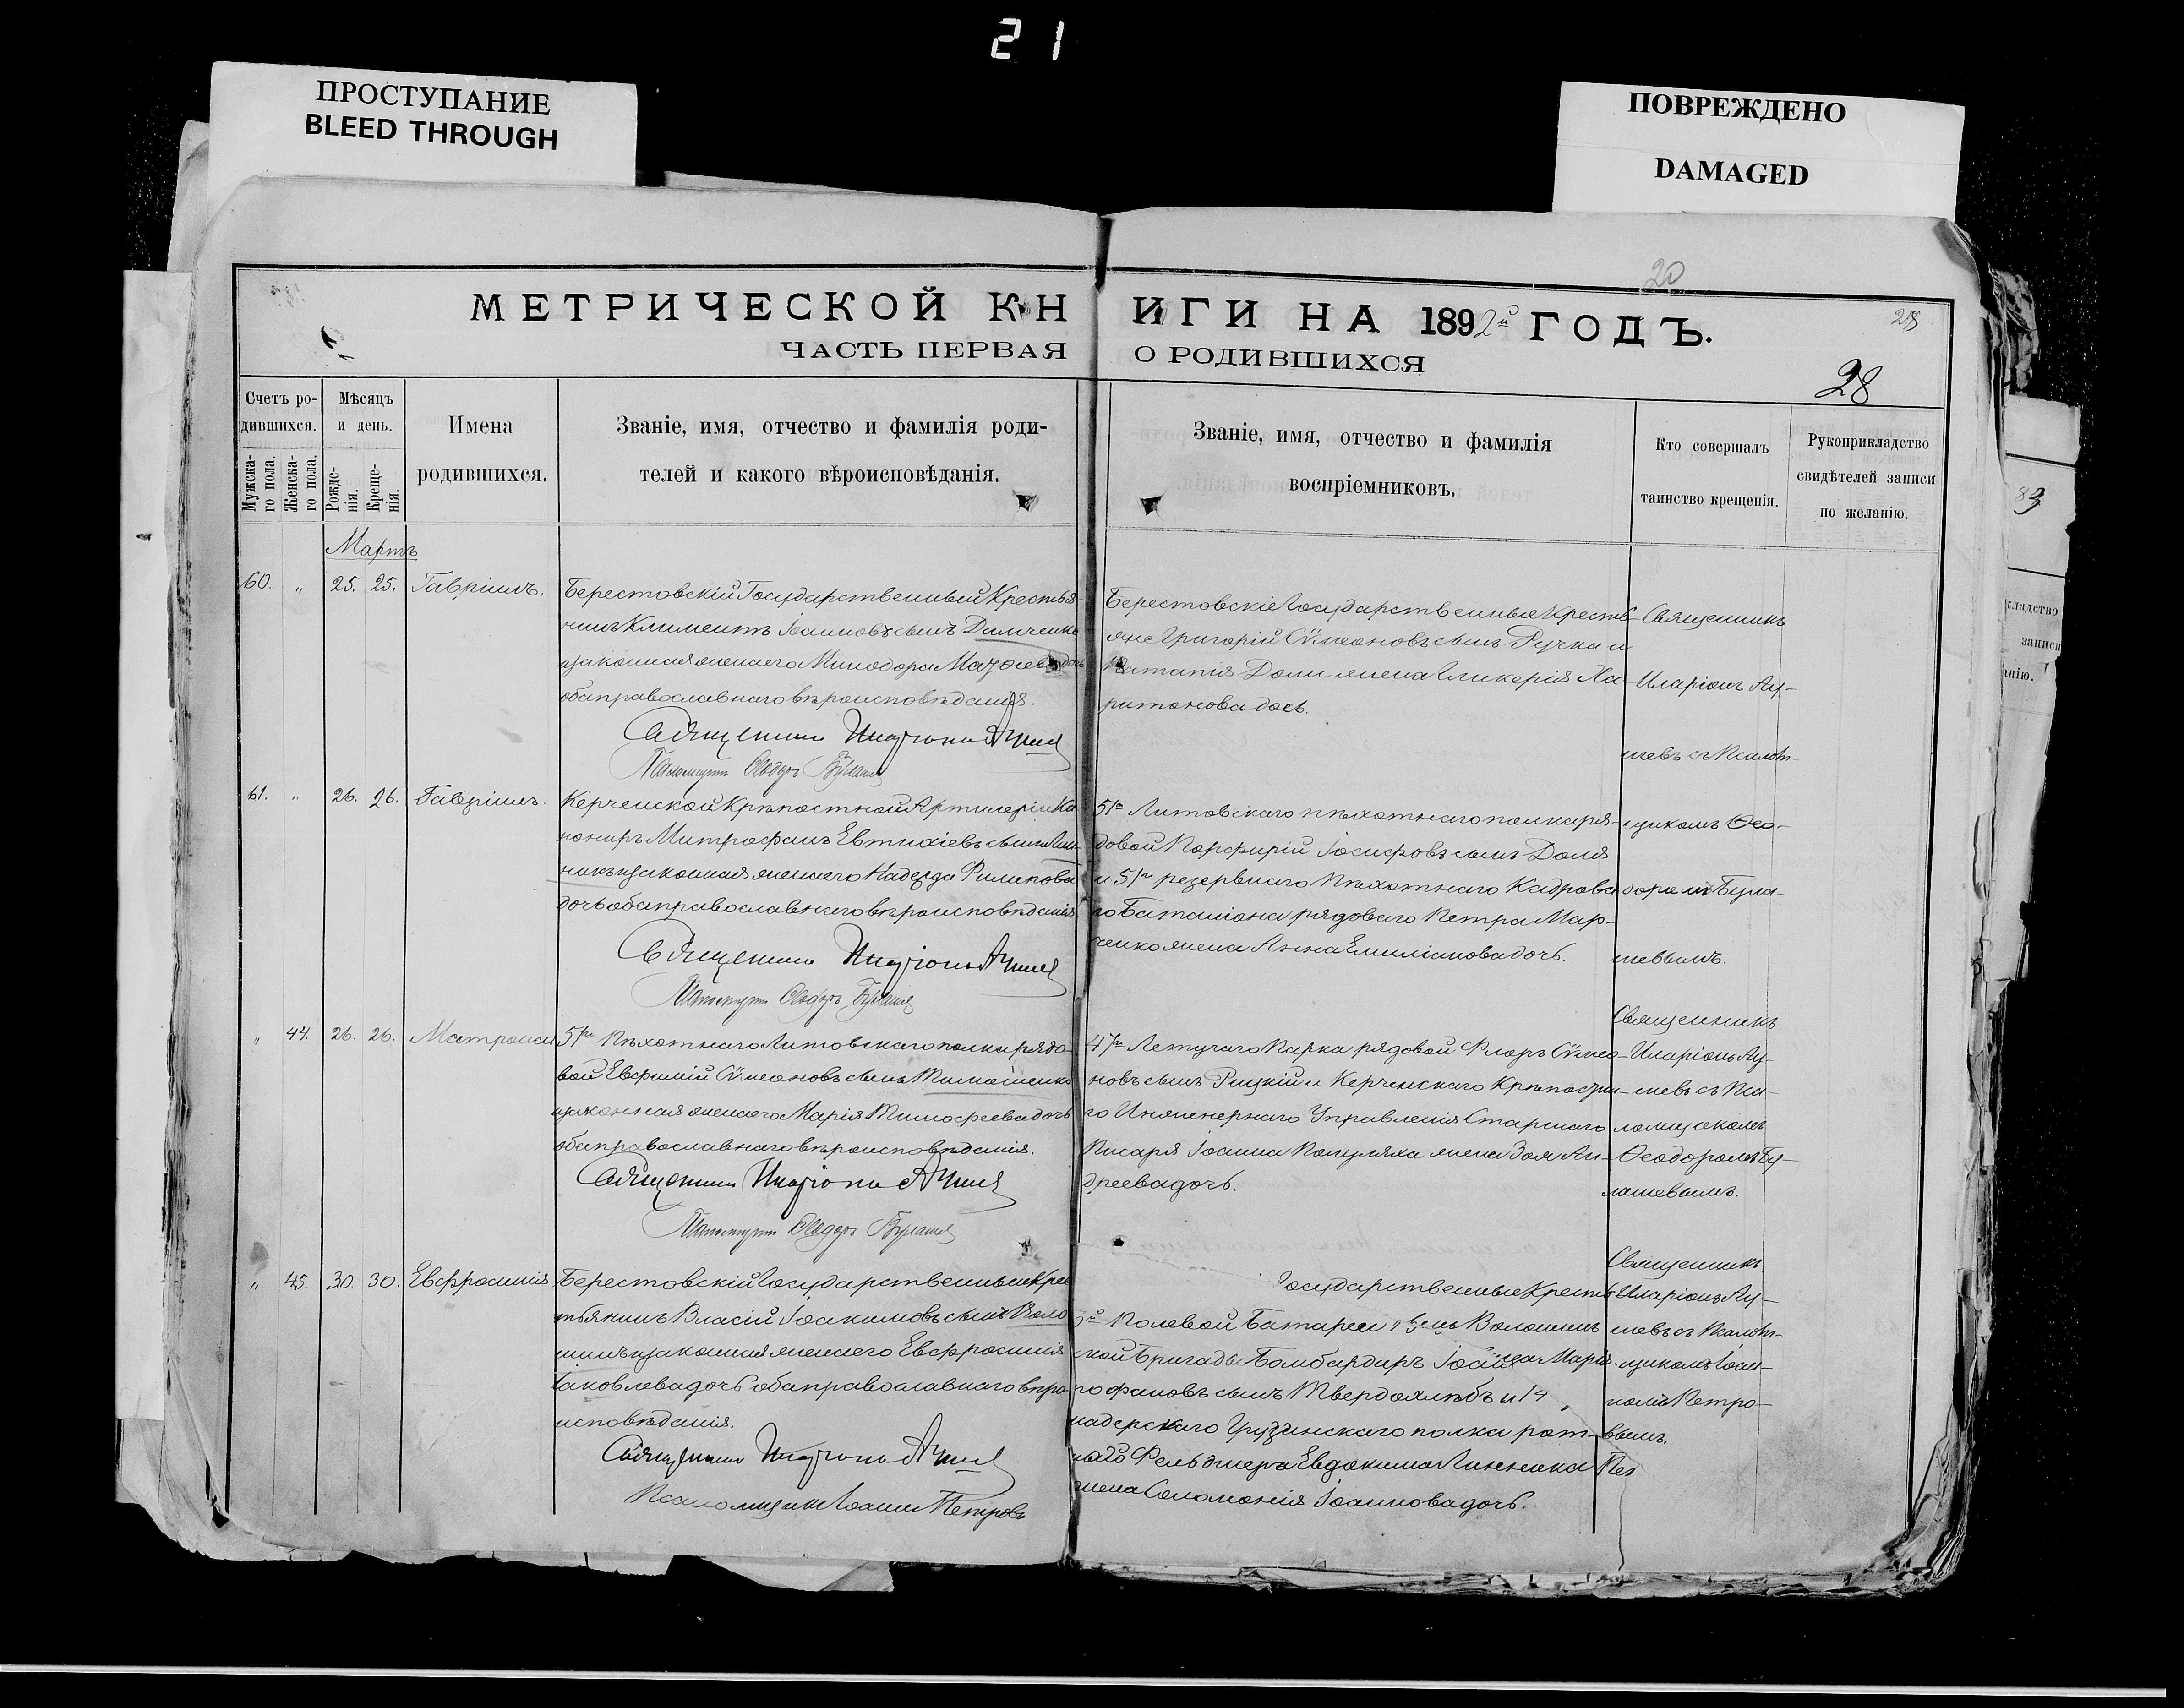 21
ПРОСТУПАНИЕ
BLEED THROUGH
ПОВРЕЖДЕНО
DAMAGED
20
МЕТРИЧЕСКОЙ КНИГИ НА 1892й ГОДЪ.
ЧАСТЬ ПЕРВАЯ О РОДИВШИХСЯ
28
Счетъ ро-
дившихся.
Мужска-
го пола.
Женска-
го пола.
Мѣсяцъ
и день.
Рожде-
нія.
Креще-
нія.
Имена
родившихся.
Званіе, имя, отчество и фамилія роди-
телей и какого вѣроисповѣданія.
Званіе, имя, отчество и фамилія
воспріемниковъ.
Кто совершалъ
таинство крещенія.
Рукоприкладство
свидѣтелей записи
по желанію.
83
кладство
записи
анію.
Мартъ
60. „ 25. 25. Гавріилъ.
Берестовскій Государственный Крестья-
нинъ Климентъ Іоанновъ сынъ
и законная жена его Минодора
оба православнаго вѣроисповѣданія.
Священникъ Иларіонъ
Псаломщикъ Ѳеодоръ
Берестовскіе Государственные Кресть-
яне Григорій Сѵмеоновъ сынъ Ручка и
жена Гликерія Ха-
ритонова дочь.
Священникъ
Иларіонъ
шевъ съ Псалом-
щикомъ Ѳео-
доромъ Була-
шевымъ.
61. „ 26. 26. Гавріилъ.
Керченской Крѣпостной Артилеріи Ка
нониръ Митрофанъ Евтихіевъ сынъ Лин-
никъ и законная жена его Надежда Филипова
дочь оба православнаго вѣроисповѣданія
Священникъ Иларіонъ
Псаломщикъ Ѳеодоръ
51го Литовскаго пѣхотнаго полка ря-
довой Порфирій Іосифовъ сынъ Доля
и 51го резервнаго Пѣхотнаго Кадрова
го Баталіона рядоваго Петра Мар-
ченко жена Анна Емиліанова дочь.
„ 44. 26. 26. Матрона
51го Пѣхотнаго Литовскаго полка рядо-
вой Евфимій Сѵмеоновъ сынъ Тимошенко
и законная жена его Марія Тимофеева дочь
оба православнаго вѣроисповѣданія.
Священникъ Иларіонъ
Псаломщикъ Ѳеодоръ
47го Летучаго Парка рядовой Флоръ Сѵмео-
новъ сынъ Рицкій и Керченскаго Крѣпостна-
го Инженернаго Управленія Старшаго
Писаря Іоанна жена Зоя Ан-
дреева дочь.
Священникъ
Иларіонъ
шевъ съ Пса-
ломщикомъ
Ѳеодоромъ Бу-
лашевымъ.
„ 45. 30. 30. Евфросинія
Берестовскій Государственный Крес
тьянинъ Власій Іоакимовъ сынъ Воло
шинъ и законная жена его Евфросинія
Іаковлева дочь оба православнаго вѣро
исповѣданія.
Священникъ Иларіонъ
Псаломщикъ Іоаннъ Петровъ
Государственные Кресть
й Полевой Батареи Волошинъ
ской Бригады Бомбардиръ Марія
рофановъ сынъ Твердохлѣбъ и 14
надерскаго Грузинскаго полка рот-
наго Фельдшера Евдокима Линника
жена Соломонія Іоаннова дочь.
Священникъ
Иларіонъ
шевъ съ Псалом-
щикомъ Іоан-
номъ Петро-
вымъ.